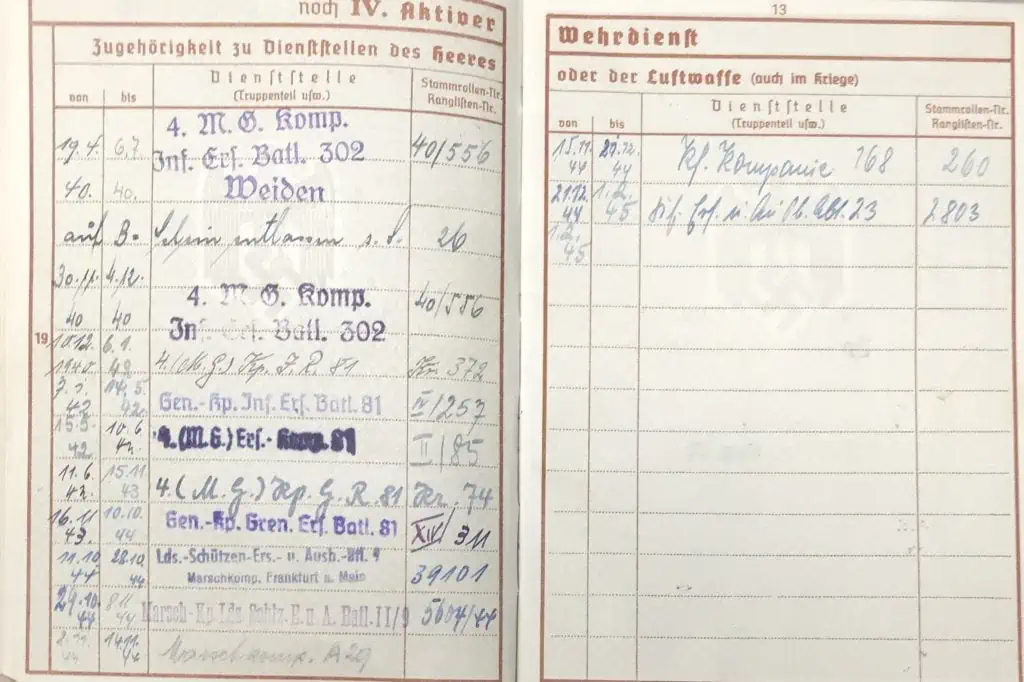 noch IV. Aktiver
Zugehörigkeit zu Dienststellen des Heeres
von bis Dienststelle (Truppenteil usw.) Stammrollen-Nr. Ranglisten-Nr.
19.4. 6.7. 4. M. G. Komp.
Inf. Ers. Batl. 302 40/556
40. 40. Weiden
auf B- Schein entlassen s. S. 26
30.11. 4.12. 4. M. G. Komp. 40/556
40 40 Inf. Ers. Batl. 302
19
10.12. 6.1.
1940. 42 4. (M.G.) Kp. J. R. 81 Kr. 372
7.1. 14.5.
42 42. Gen.-Kp. Inf. Ers. Batl. 81 IV/257
15.5. 10.6
42 42. 4. (M.G.) Ers.- Komp. 81 II/85
11.6. 15.11
42. 43 4. (M. G.) Kp. G. R. 81 Kr. 74
16.11 10.10.
43. 44 Gen.-Kp. Gren. Ers. Batl. 81 XIV/311
11.10 28.10. Lds.-Schützen-Ers.- u. Ausb.-Btl. 9
44 44 Marschkomp. Frankfurt a Main 39101
29.10. 8.11
44 44 Marsch-Kp. Lds. Schtz. E. u. A. Batl. II/9 5604/44
8.11. 14.11.
44 44 Marschkomp. A 29
13
Wehrdienst
oder der Luftwaffe (auch im Kriege)
von bis Dienststelle (Truppenteil usw.) Stammrollen-Nr. Ranglisten-Nr.
15.11. 20.12.
44 44 Kf. Kompanie 168 260
21.12. 1.2.
44 45 23 2803
1.2.
45